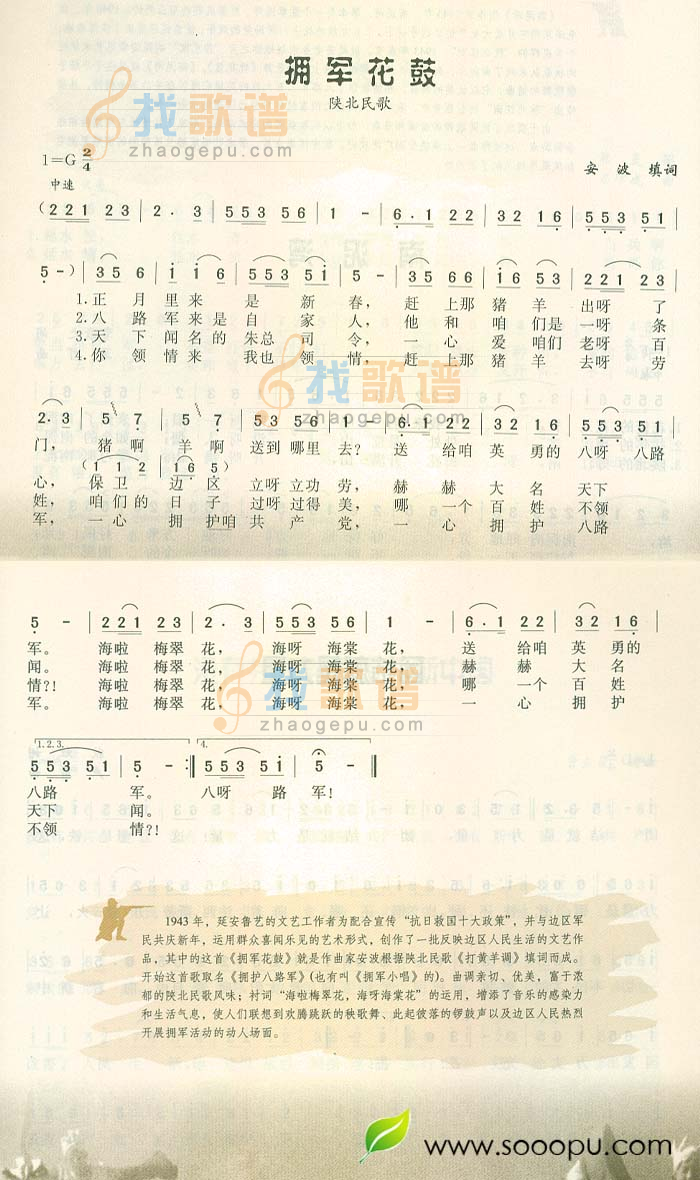 拥军花鼓
陕北民歌
找歌谱
zhaogepu.com
1=G 2/4
中速
安 波 填词
(221 23 | 2·3 | 553 56 | 1 - | 6·1 22 | 32 16 | 553 51 |
5 -) | 35 6 | i i 6 | 553 5i | 5 - | 35 66 | i6 53 | 221 23 |
1.正 月 里 来 是 新 春, 赶 上那 猪 羊 出呀 了
2.八 路 军 来 是 自 家 人, 他 和 咱 们是 一呀 条
3.天 下 闻名 的 朱总 司 令, 一 心 爱 咱们 老呀 百
4.你 领 情 来 我 也 领 情, 赶 上那 猪 羊 去呀 劳
找歌谱
zhaogepu.com
2·3 | 5 7 | 5 7 | 553 56 | 1 - | 6·1 22 | 32 16 | 553 51 |
门, 猪啊 羊啊 送到 哪里 去? 送 给咱 英 勇的 八呀 八路
(1 12 | 165)
心, 保卫 边区 立呀 立功 劳, 赫 赫 大 名 天下
姓, 咱们的 日子 过呀 过得 美, 哪 一个 百 姓 不领
军, 一心 拥护咱 共 产 党, 一 心 拥 护 八路
5 - | 221 23 | 2·3 | 553 56 | 1 - | 6·1 22 | 32 16 |
军。 海啦 梅翠 花, 海呀 海棠 花, 送 给咱 英 勇的
闻。 海啦 梅翠 花, 海呀 海棠 花, 赫 赫 大 名
情?! 海啦 梅翠 花, 海呀 海棠 花, 哪 一个 百 姓
军。 海啦 梅翠 花, 海呀 海棠 花, 一 心 拥 护
找歌谱
zhaogepu.com
1.2.3. 4.
553 51 | 5 - :‖ 553 5i | 5 - ‖
八路 军。 八呀 路 军!
天下 闻。
不领 情?!
1943 年，延安鲁艺的文艺工作者为配合宣传“抗日救国十大政策”，并与边区军
民共庆新年，运用群众喜闻乐见的艺术形式，创作了一批反映边区人民生活的文艺作
品，其中的这首《拥军花鼓》就是作曲家安波根据陕北民歌《打黄羊调》填词而成。
开始这首歌取名《拥护八路军》(也有叫《拥军小唱》的)。曲调亲切、优美，富于浓
郁的陕北民歌风味；衬词“海啦梅翠花，海呀海棠花”的运用，增添了音乐的感染力
和生活气息，使人们联想到欢腾跳跃的秧歌舞、此起彼落的锣鼓声以及边区人民热烈
开展拥军活动的动人场面。
www.sooopu.com